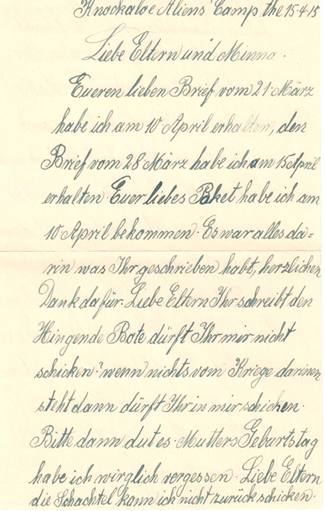 Knockaloe Aliens Camp the 15.4.15
Liebe Eltern und Minna.
Eueren lieben Brief vom 21 März
habe ich am 10 April erhalten, den
Brief vom 28 März habe ich am 15 April
erhalten. Euer liebes Paket habe ich am
10 April bekommen. Es war alles da=
rin was Ihr geschrieben habt, herzlichen
Dank dafür. Liebe Eltern Ihr schreibt den
Hingende Bote dürft Ihr mir nicht
schicken. wenn nichts vom Kriege darinen
steht dann dürft Ihr in mir schicken.
Bitte dann dut es. Mutters Geburtstag
habe ich wirglich vergessen. Liebe Eltern
die Schachtel kann ich nicht zurück schicken.